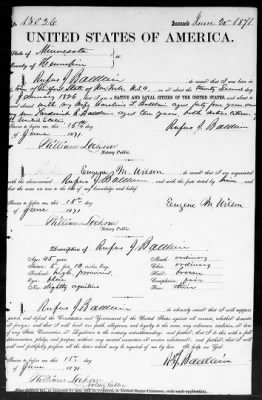 No 13026 Issued June 20 1871
UNITED STATES OF AMERICA.
State of Minnesota
County of Hennepin ss.
I, Rufus J Baldwin do swear that I was born in
the State of New York U.S.A. on or about the twenty second day
of January 1826, that I am a NATIVE AND LOYAL CITIZEN OF THE UNITED STATES, and about to travel
abroad with my wife L Baldwin aged forty four years and
my son Frederick A Baldwin aged ten years, both native citizens of
United States
Sworn to before me this 15th day
of June 1871
Rufus J Baldwin
William Lochren
Notary Public.
I, Eugene M Wilson do swear that I am acquainted
with the above-named Rufus J Baldwin and with the facts stated by him and that
the same are true to the best of my knowledge and belief.
Sworn to before me this 15th day
of June 1871
Eugene M Wilson
William Lochren
Notary Public.
Description of Rufus J Baldwin
Age: 45 years Mouth: ordinary
Stature: 5 feet 10 inches, Eng. Chin: ordinary
Forehead: high, prominent Hair: brown
Eyes: blue Complexion: fair
Nose: slightly aquiline Face: thin
I, Rufus J Baldwin do solemnly swear that I will support,
protect, and defend the Constitution and Government of the United States against all enemies, whether domestic
or foreign; and that I will bear true faith, allegiance, and loyalty to the same, any ordinance, resolution, or law
of any State, Convention, or Legislature to the contrary notwithstanding; and further, that I do this with a full
determination, pledge, and purpose, without any mental reservation or evasion whatsoever; and further, that I will
well and faithfully perform all the duties which may be required of me by law. So help me God.
Sworn to before me this 15th day
of June 1871
R J Baldwin
William Lochren
Notary Public